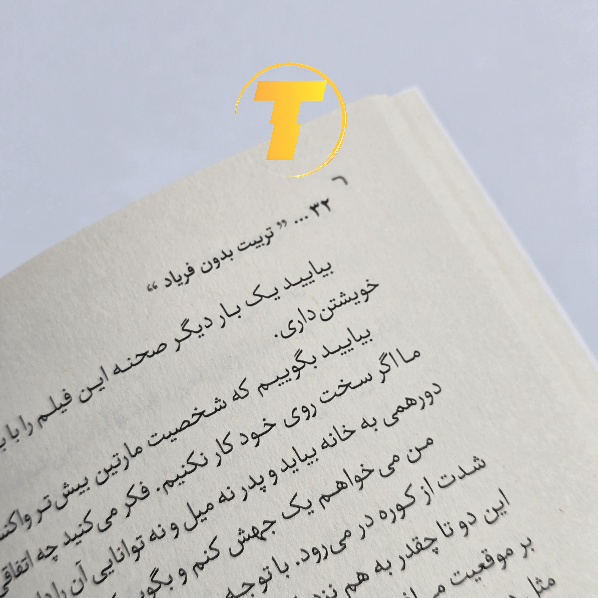 T
۳۲ ... ” تربیت بدون فریاد “
بیایید یک بار دیگر صحنه این فیلم را با
خویشتن‌داری.
بیایید بگوییم که شخصیت مارتین بیش‌تر
ما اگر سخت روی خود کار نکنیم. فکر می‌کنید چه
دورهمی به خانه بیاید و پدر نه میل و نه توانایی آن را
من می‌خواهم یک جهش کنم و
شدت از کوره در می‌رود. با توجه
این دو تا چقدر به هم
بر موقعیت
مثل